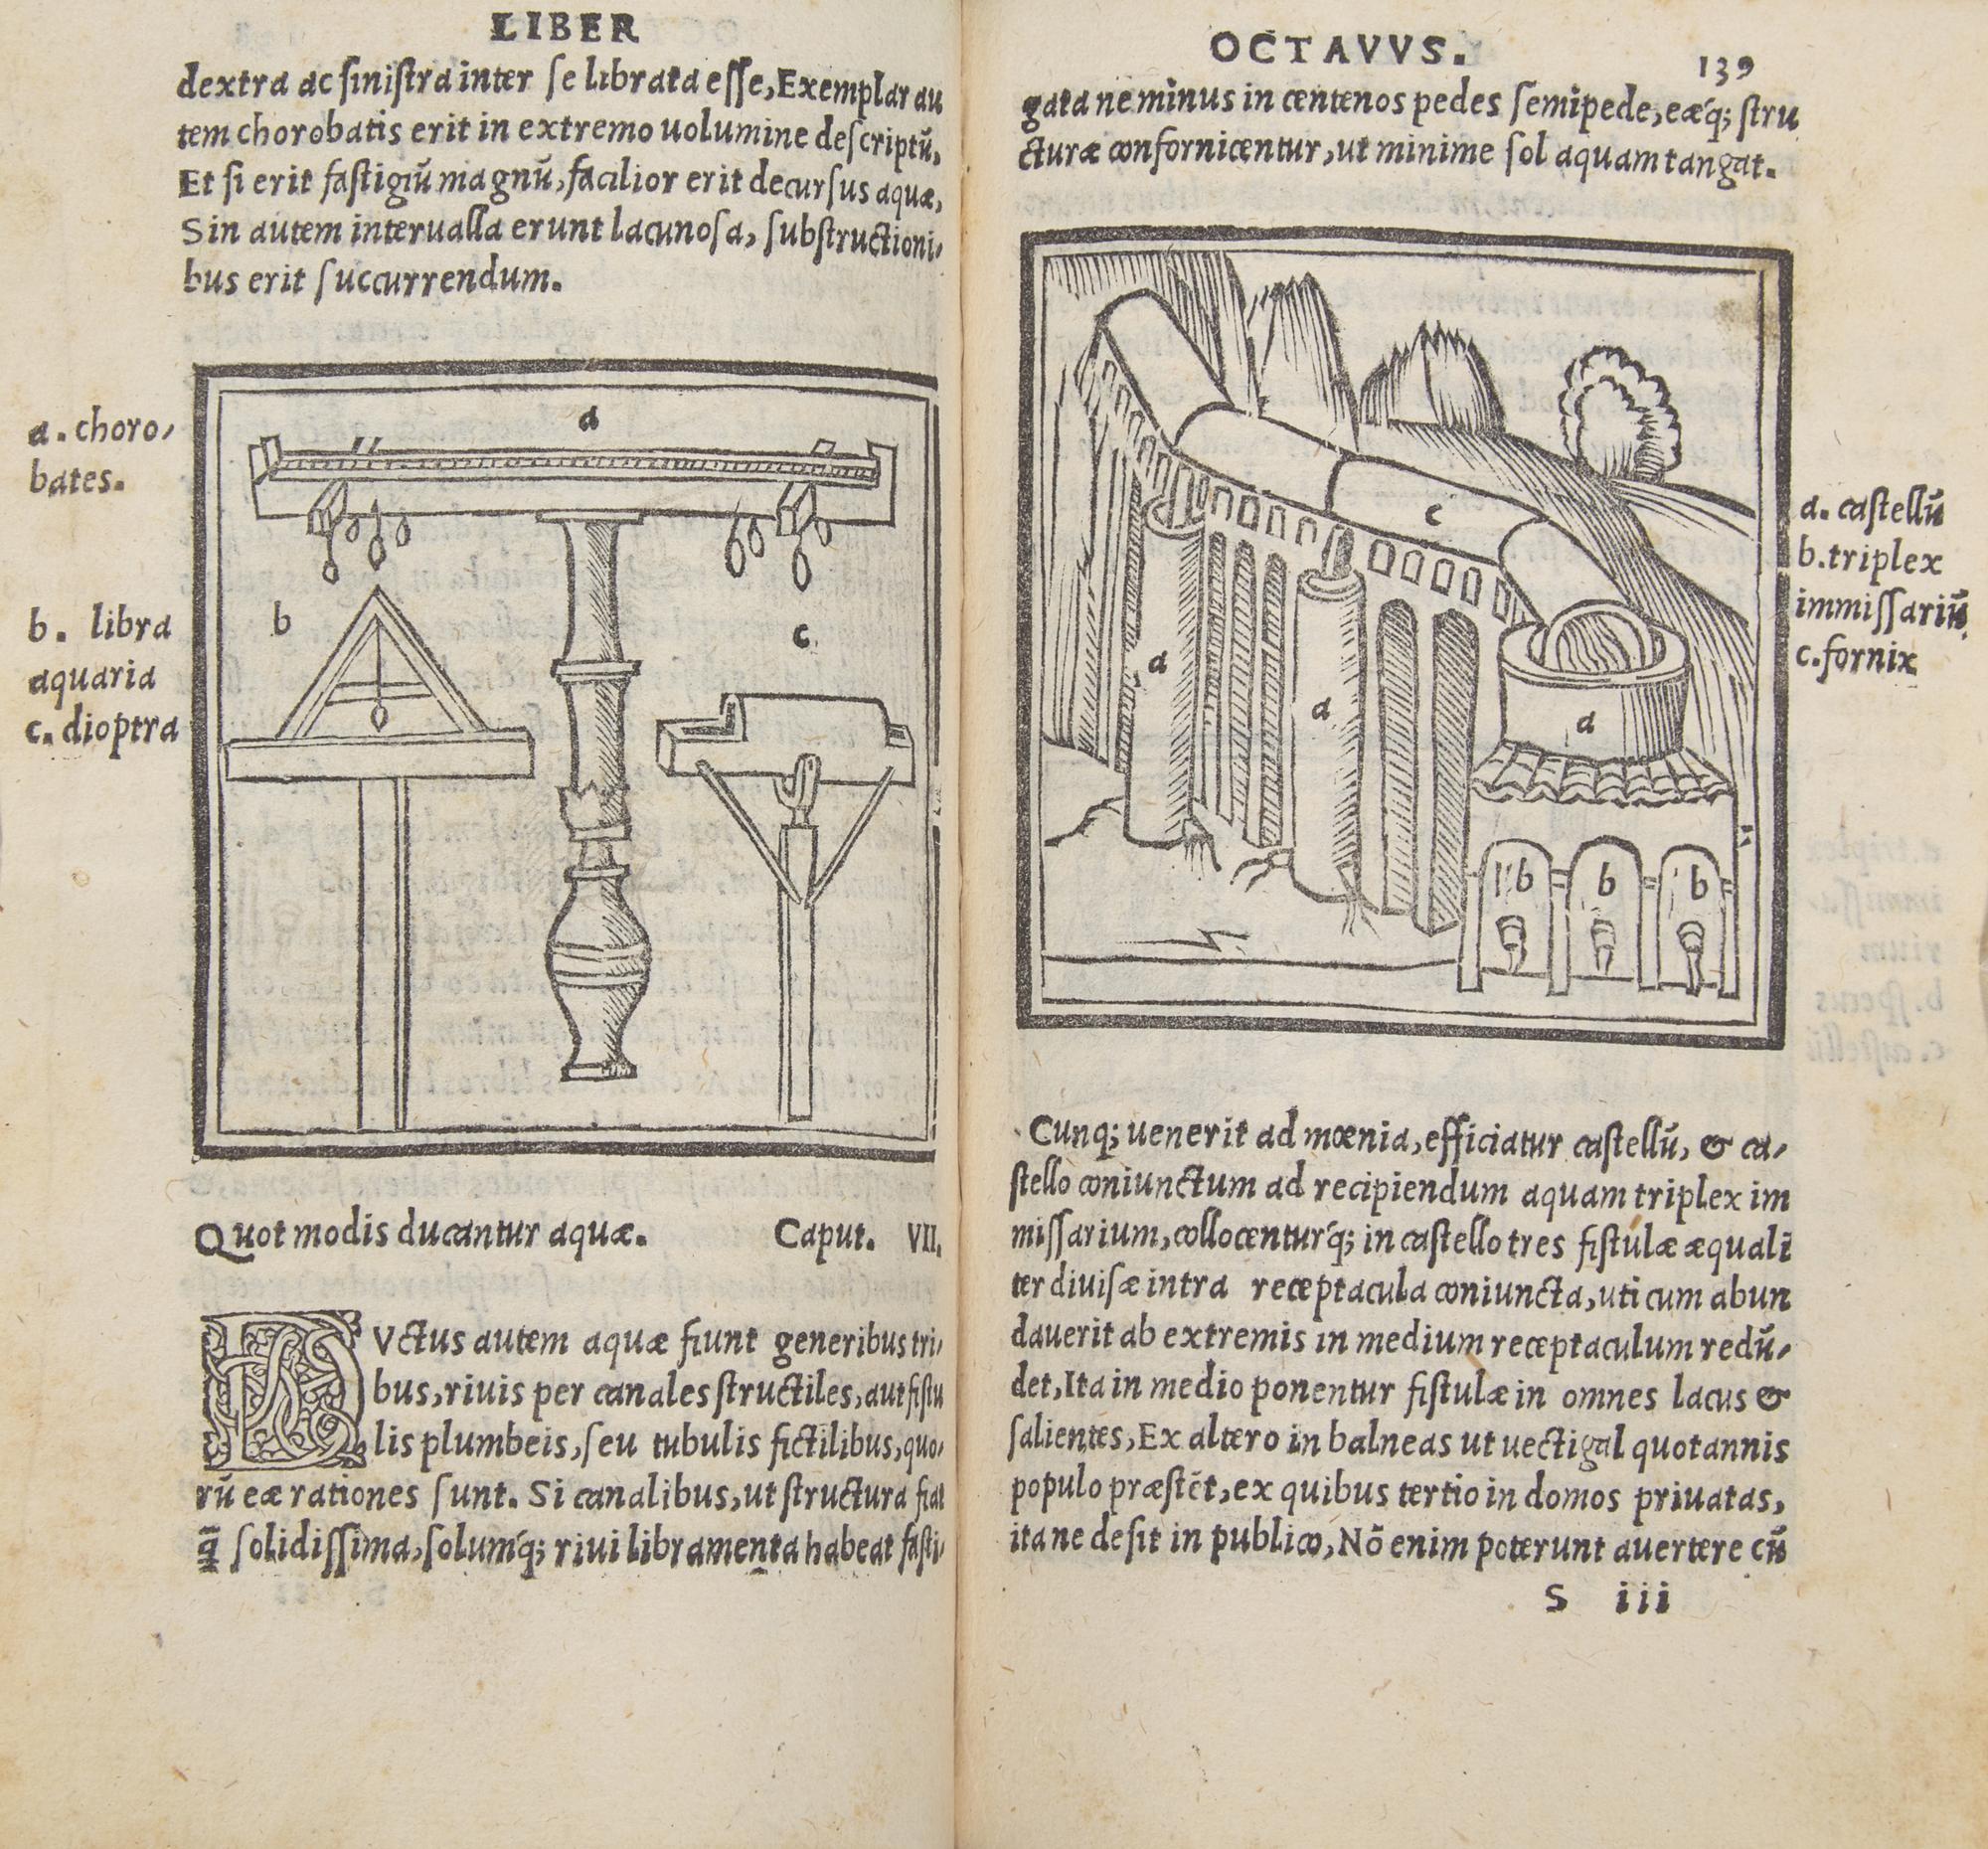 LIBER
dextra ac siniſtra inter ſe librata eſſe, Exemplar au
tem chorobatis erit in extremo uolumine deſcriptū,
Et ſi erit faſtigiū magnū, facilior erit decurſus aquæ,
Sin autem interualla erunt lacunoſa, ſubſtructioni,
bus erit ſuccurrendum.
a. choro,
bates.
b. libra
aquaria
c. dioptra
a
b
c
Quot modis ducantur aquæ. Caput. VII.
DVctus autem aquæ fiunt generibus tri,
bus, riuis per canales ſtructiles, aut fiſtu
lis plumbeis, ſeu tubulis fictilibus, quo,
rū eæ rationes ſunt. Si canalibus, ut ſtructura fiat
q̄ ſolidiſſima, ſolumq́; riui libramenta habeat faſti,
OCTAVVS. 139
gata ne minus in centenos pedes ſemipede, eæq́; ſtru
cturæ confornicentur, ut minime ſol aquam tangat.
c
a
a
a
b
b
b
a. caſtellū
b. triplex
immiſſariū
c. fornix
Cunq; uenerit ad mœnia, efficiatur caſtellū, & ca,
ſtello coniunctum ad recipiendum aquam triplex im
miſſarium, collocenturq́; in caſtello tres fiſtulæ æquali
ter diuiſæ intra receptacula coniuncta, uti cum abun
dauerit ab extremis in medium receptaculum redū,
det, Ita in medio ponentur fiſtulæ in omnes lacus &
ſalientes, Ex altero in balneas ut uectigal quotannis
populo præſtēt, ex quibus tertio in domos priuatas,
ita ne deſit in publico, Nō enim poterunt auertere cū
S iii